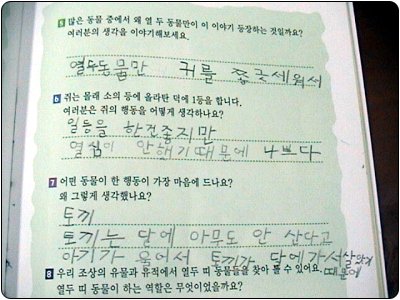 5 많은 동물 중에서 왜 열 두 동물만이 이 이야기 등장하는 것일까요?
여러분의 생각을 이야기해보세요.
열두동물만 귀를 쫑긋세워서
6 쥐는 몰래 소의 등에 올라탄 덕에 1등을 합니다.
여러분은 쥐의 행동을 어떻게 생각하나요?
일등을 한건좋지만
열심이 안했기때문에 나쁘다
7 어떤 동물이 한 행동이 가장 마음에 드나요?
왜 그렇게 생각했나요?
토끼
토끼는 달에 아무도 안 산다고
아기가 울어서 토끼가 달에가서살았기
때문에
8 우리 조상의 유물과 유적에서 열두 띠 동물들을 찾아 볼 수 있어요.
열두 띠 동물이 하는 역할은 무엇이었을까요?